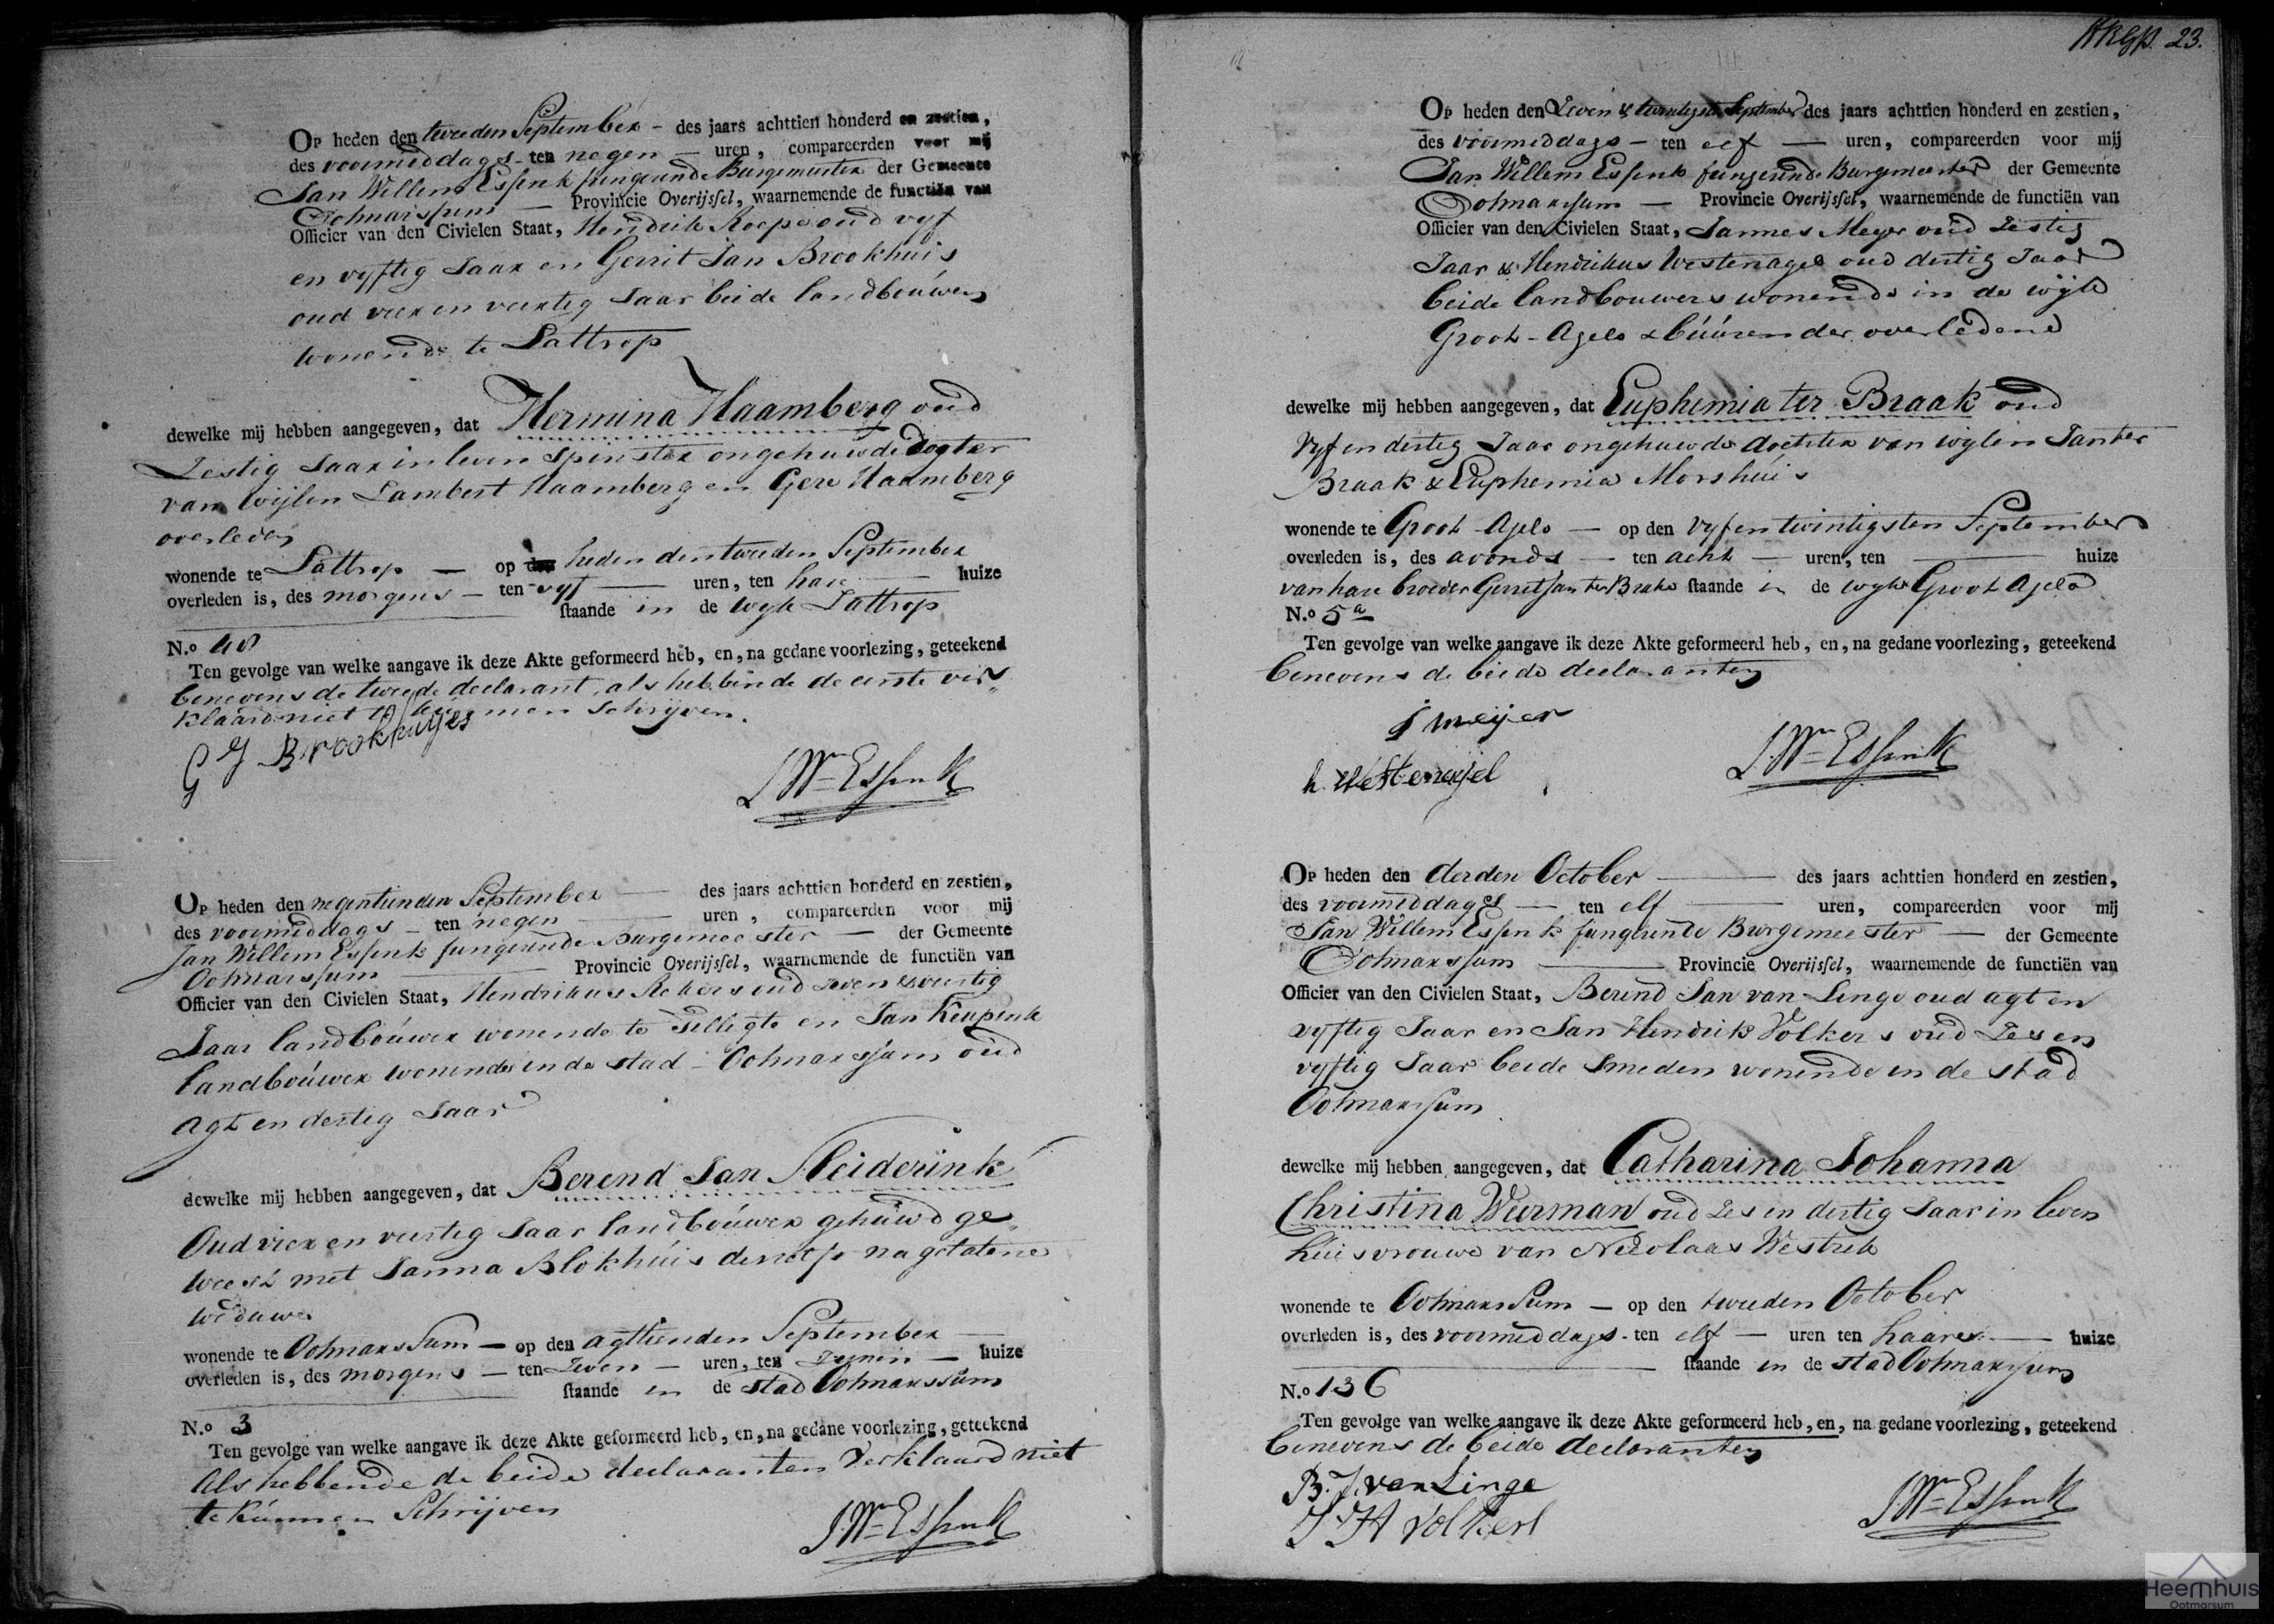 Op heden den tweeden September - des jaars achttien honderd en zestien,
des voormiddags - ten negen - uren, compareerden voor mij
Jan Willem Essink fungeerende Burgemeester der Gemeente
Ootmarssum - Provincie Overijssel, waarnemende de functiën van
Officier van den Civielen Staat, Hendrik oud vyf
en vyftig Jaar en Gerrit Jan Brookhuis
oud vier en veertig Jaar beide landbouwers
wonende te Lattrop
dewelke mij hebben aangegeven, dat Hermina Haamberg oud
Zestig Jaar in leven spinster ongehuwde Dogter
van Wijlen Lambert Haamberg en Gere Haamberg
overleden
wonende te Lattrop - op den heden den tweeden September
overleden is, des morgens - ten vyf - uren, ten hare - huize
staande in de wyk Lattrop
N.o 40
Ten gevolge van welke aangave ik deze Akte geformeerd heb, en, na gedane voorlezing, geteekend
benevens de tweede declarant, als hebbende de eerste ver
klaard niet te kunnen Schryven.
G J Brookhuijes
J Wm Essink
Op heden den negentienden September - des jaars achttien honderd en zestien,
des voormiddags - ten negen - uren, compareerden voor mij
Jan Willem Essink fungerende Burgemeester - der Gemeente
Ootmarssum - Provincie Overijssel, waarnemende de functiën van
Officier van den Civielen Staat, Hendrikus Rekers oud zeven & veertig
Jaar landbouwer wonende te Tilligte en Jan Keupink
landbouwer wonende in de stad - Ootmarssum oud
agt en dertig Jaar
dewelke mij hebben aangegeven, dat Berend Jan Sleiderink
Oud vier en veertig Jaar landbouwer gehuwd ge
weest met Janna Blokhuis deszelfs nagelatene
weduwe
wonende te Ootmarssum - op den agttienden September -
overleden is, des morgens - ten Zeven - uren, ten zynen - huize
staande in de stad Ootmarssum
N.o 3
Ten gevolge van welke aangave ik deze Akte geformeerd heb, en, na gedane voorlezing, geteekend
Als hebbende de beide declaranten Verklaard niet
te kunnen Schrijven
J. Wm Essink
23.
Op heden den Zeven & twintigste September des jaars achttien honderd en zestien,
des voormiddags - ten elf - uren, compareerden voor mij
Jan Willem Essink fungerende Burgemeester der Gemeente
Ootmarssum - Provincie Overijssel, waarnemende de functiën van
Officier van den Civielen Staat, Jannes Meyer oud Zestig
Jaar & Hendrikus Westenagel oud dertig Jaar
beide landbouwers wonende in de wyk
Groot-Agelo & buuren der overledene
dewelke mij hebben aangegeven, dat Euphemia ter Braak oud
Vyf en dertig Jaar ongehuwde dochter van wylen Jan ter
Braak & Euphemia Morshuis
wonende te Groot-Agelo - op den Vyf en twintigsten September
overleden is, des avonds - ten acht - uren, ten - huize
van hare broeder Gerrit Jan ter Brake staande in de wyk Groot Agelo
N.o 5a
Ten gevolge van welke aangave ik deze Akte geformeerd heb, en, na gedane voorlezing, geteekend
benevens de beide declaranten
J meijer
h. Westenagel
J. Wm Essink
Op heden den derden October - des jaars achttien honderd en zestien,
des voormiddags - ten elf - uren, compareerden voor mij
Jan Willem Essink fungerende Burgemeester - der Gemeente
Ootmarssum - Provincie Overijssel, waarnemende de functiën van
Officier van den Civielen Staat, Berend Jan van Linge oud agt en
vyftig Jaar en Jan Hendrik Volkers oud Zes en
vyftig Jaar beide Smeden wonende in de stad
Ootmarssum
dewelke mij hebben aangegeven, dat Catharina Johanna
Christina Weerman oud Zes en dertig Jaar in leven
huisvrouwe van Nicolaas Westrik
wonende te Ootmarssum - op den tweeden October
overleden is, des voormiddags - ten elf - uren ten haaren - huize
staande in de stad Ootmarssum
N.o 136
Ten gevolge van welke aangave ik deze Akte geformeerd heb, en, na gedane voorlezing, geteekend
benevens de beide declaranten
B. J. van Linge
J H Volkers
J. Wm Essink
Heemhuis
Ootmarsum